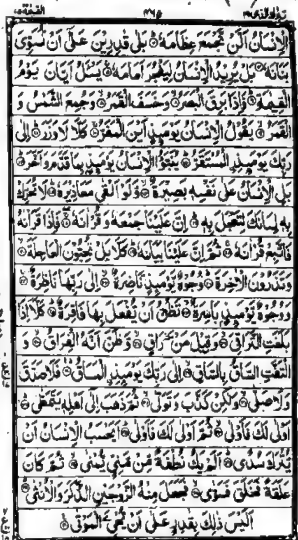 الْاِنْسَانُ اَلَّنْ نَّجْمَعَ عِظَامَهٗ ؕ بَلٰى قٰدِرِيْنَ عَلٰۤى اَنْ نُّسَوِّيَ
بَنَانَهٗ بَلْ يُرِيْدُ الْاِنْسَانُ لِيَفْجُرَ اَمَامَهٗ ۚ يَسْـَٔلُ اَيَّانَ يَوْمُ
الْقِيٰمَةِ ؕ فَاِذَا بَرِقَ الْبَصَرُ ۙ وَخَسَفَ الْقَمَرُ ۙ وَجُمِعَ الشَّمْسُ وَ
الْقَمَرُ ۙ يَقُوْلُ الْاِنْسَانُ يَوْمَئِذٍ اَيْنَ الْمَفَرُّ ۚ كَلَّا لَا وَزَرَ ؕ اِلٰى
رَبِّكَ يَوْمَئِذِ الْمُسْتَقَرُّ ؕ يُنَبَّؤُا الْاِنْسَانُ يَوْمَئِذٍۭ بِمَا قَدَّمَ وَاَخَّرَ ؕ
بَلِ الْاِنْسَانُ عَلٰى نَفْسِهٖ بَصِيْرَةٌ ۙ وَّلَوْ اَلْقٰى مَعَاذِيْرَهٗ ؕ لَا تُحَرِّكْ
بِهٖ لِسَانَكَ لِتَعْجَلَ بِهٖ ؕ اِنَّ عَلَيْنَا جَمْعَهٗ وَقُرْاٰنَهٗ ۚ فَاِذَا قَرَاْنٰهُ
فَاتَّبِعْ قُرْاٰنَهٗ ۚ ثُمَّ اِنَّ عَلَيْنَا بَيَانَهٗ ؕ كَلَّا بَلْ تُحِبُّوْنَ الْعَاجِلَةَ ۙ
وَتَذَرُوْنَ الْاٰخِرَةَ ؕ وُجُوْهٌ يَّوْمَئِذٍ نَّاضِرَةٌ ۙ اِلٰى رَبِّهَا نَاظِرَةٌ ۚ
وَوُجُوْهٌ يَّوْمَئِذٍۭ بَاسِرَةٌ ۙ تَظُنُّ اَنْ يُّفْعَلَ بِهَا فَاقِرَةٌ ؕ كَلَّاۤ اِذَا
بَلَغَتِ التَّرَاقِيَ ۙ وَقِيْلَ مَنْ رَاقٍ ۙ وَّظَنَّ اَنَّهُ الْفِرَاقُ ۙ وَ
الْتَفَّتِ السَّاقُ بِالسَّاقِ ۙ اِلٰى رَبِّكَ يَوْمَئِذِ الْمَسَاقُ ؕ فَلَا صَدَّقَ
وَلَا صَلّٰى ۙ وَلٰكِنْ كَذَّبَ وَتَوَلّٰى ۙ ثُمَّ ذَهَبَ اِلٰۤى اَهْلِهٖ يَتَمَطّٰى ؕ
اَوْلٰى لَكَ فَاَوْلٰى ۙ ثُمَّ اَوْلٰى لَكَ فَاَوْلٰى ؕ اَيَحْسَبُ الْاِنْسَانُ اَنْ
يُّتْرَكَ سُدًى ؕ اَلَمْ يَكُ نُطْفَةً مِّنْ مَّنِيٍّ يُّمْنٰى ۙ ثُمَّ كَانَ
عَلَقَةً فَخَلَقَ فَسَوّٰى ۙ فَجَعَلَ مِنْهُ الزَّوْجَيْنِ الذَّكَرَ وَالْاُنْثٰى ؕ
اَلَيْسَ ذٰلِكَ بِقٰدِرٍ عَلٰۤى اَنْ يُّحْـِۧيَ الْمَوْتٰى